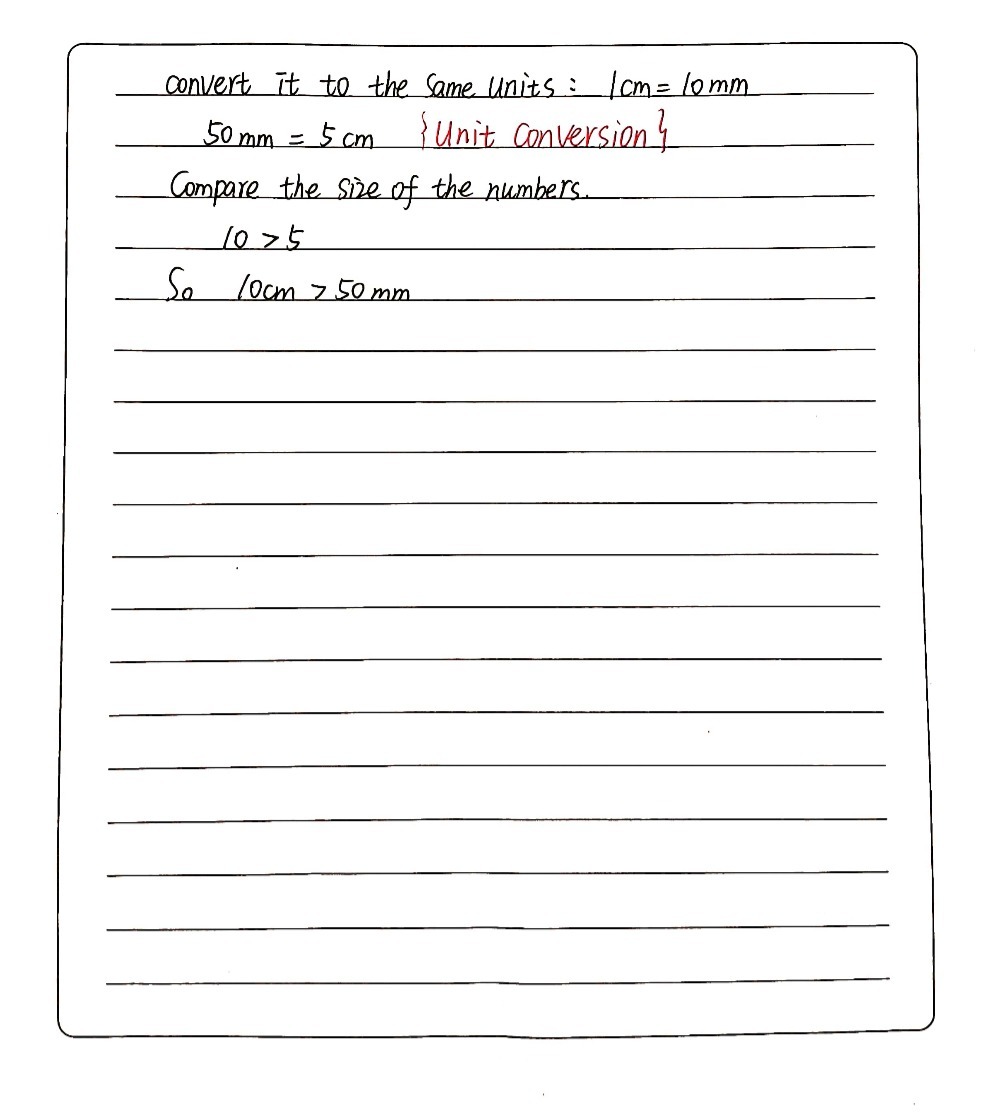 convert it to the same units : 1cm = 10mm
50mm = 5cm {Unit Conversion}
Compare the size of the numbers.
10 > 5
So 10cm > 50mm